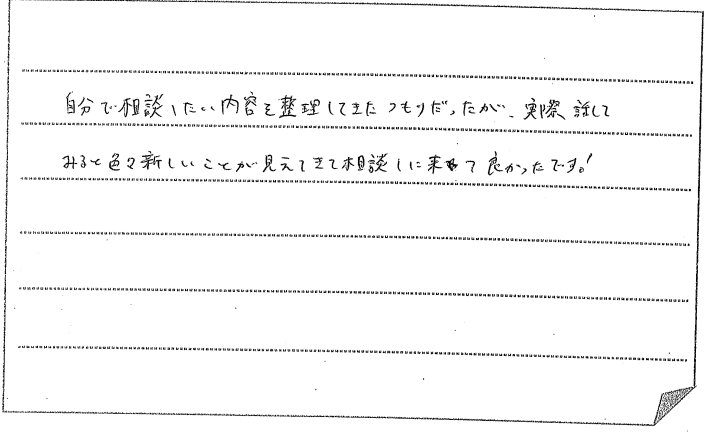 自分で相談したい内容を整理してきたつもりだったが、実際話して
みると色々新しいことが見えてきて相談しに来て良かったです!